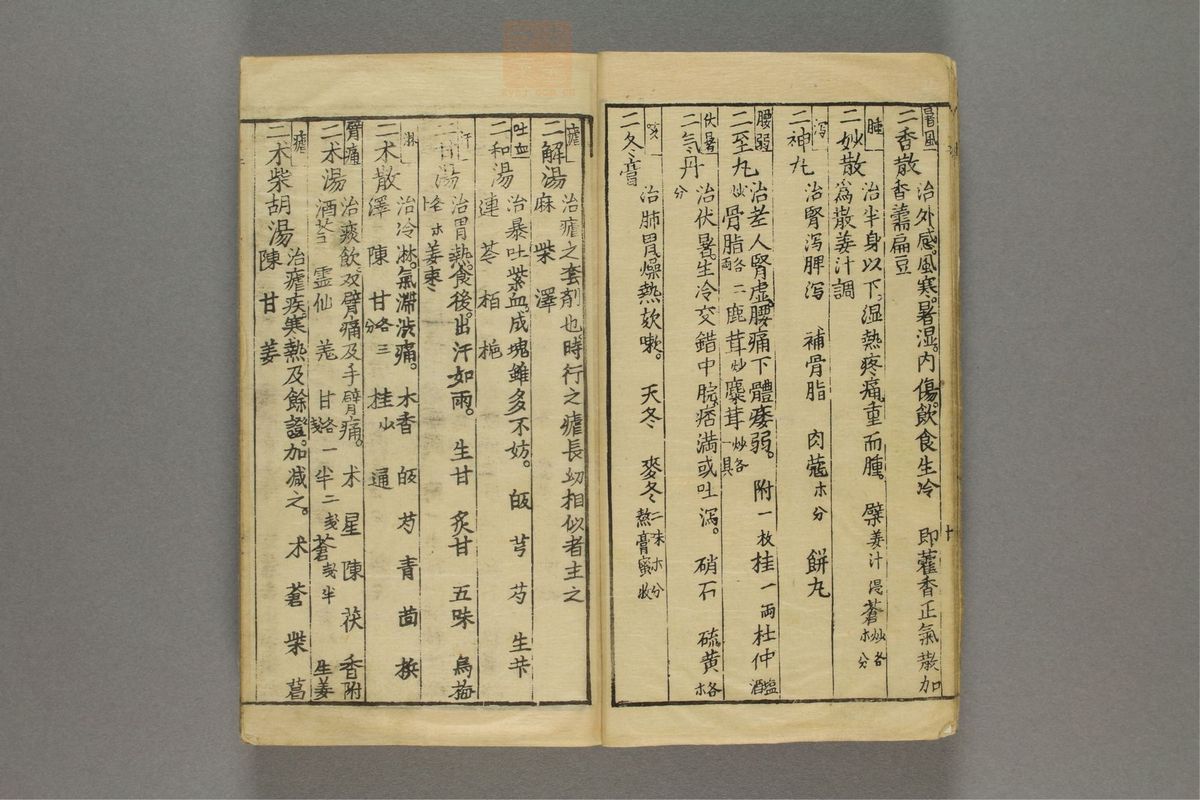 暑風
二香散 治外感風寒。暑湿。内傷飲食生冷 即藿香正氣散加
香薷扁豆
腫
二妙散 治半身以下。湿熱疼痛重而腫。 檗姜汁 浸 蒼炒各木分
為散姜汁調
瀉
二神丸 治腎瀉脾瀉 補骨脂 肉蔻木分 餅丸
腰弱
二至丸 治老人腎虚。腰痛下體痿弱。 附一枚桂一両杜仲塩酒
炒骨脂各両二鹿茸炒麋茸炒各一具
伏暑
二气丹 治伏暑。生冷交錯中脘。痞満或吐瀉。 硝石 硫黄各木
分
咳
二冬膏 治肺胃燥熱欬嗽。 天冬 麥冬二味木分熬膏蜜收
瘧
二解湯 治瘧之套剤也。時行之瘧長幼相似者主之
麻 柴 澤
吐血
二和湯 治暴吐紫血。成塊雖多不妨。 皈 芎 芍 生芐
連 芩 栢 梔
汗
二甘湯 治胃熱。食後。出汗如雨。 生甘 炙甘 五味 烏梅
各木 姜棗
淋
二术散 治冷淋。氣滯渋痛。 木香 皈 芍 青 茴 梹
澤 陳 甘各三分 桂少 通
臂痛
二术湯 治痰飲双臂痛及手臂痛。 术 星 陳 茯 香附
酒芩 霊仙 羌 甘各一戔半二戔蒼戔半 生姜
瘧
二术柴胡湯 治瘧疾寒熱及餘證。加減之。 术 蒼 柴 葛
陳 甘 姜
十